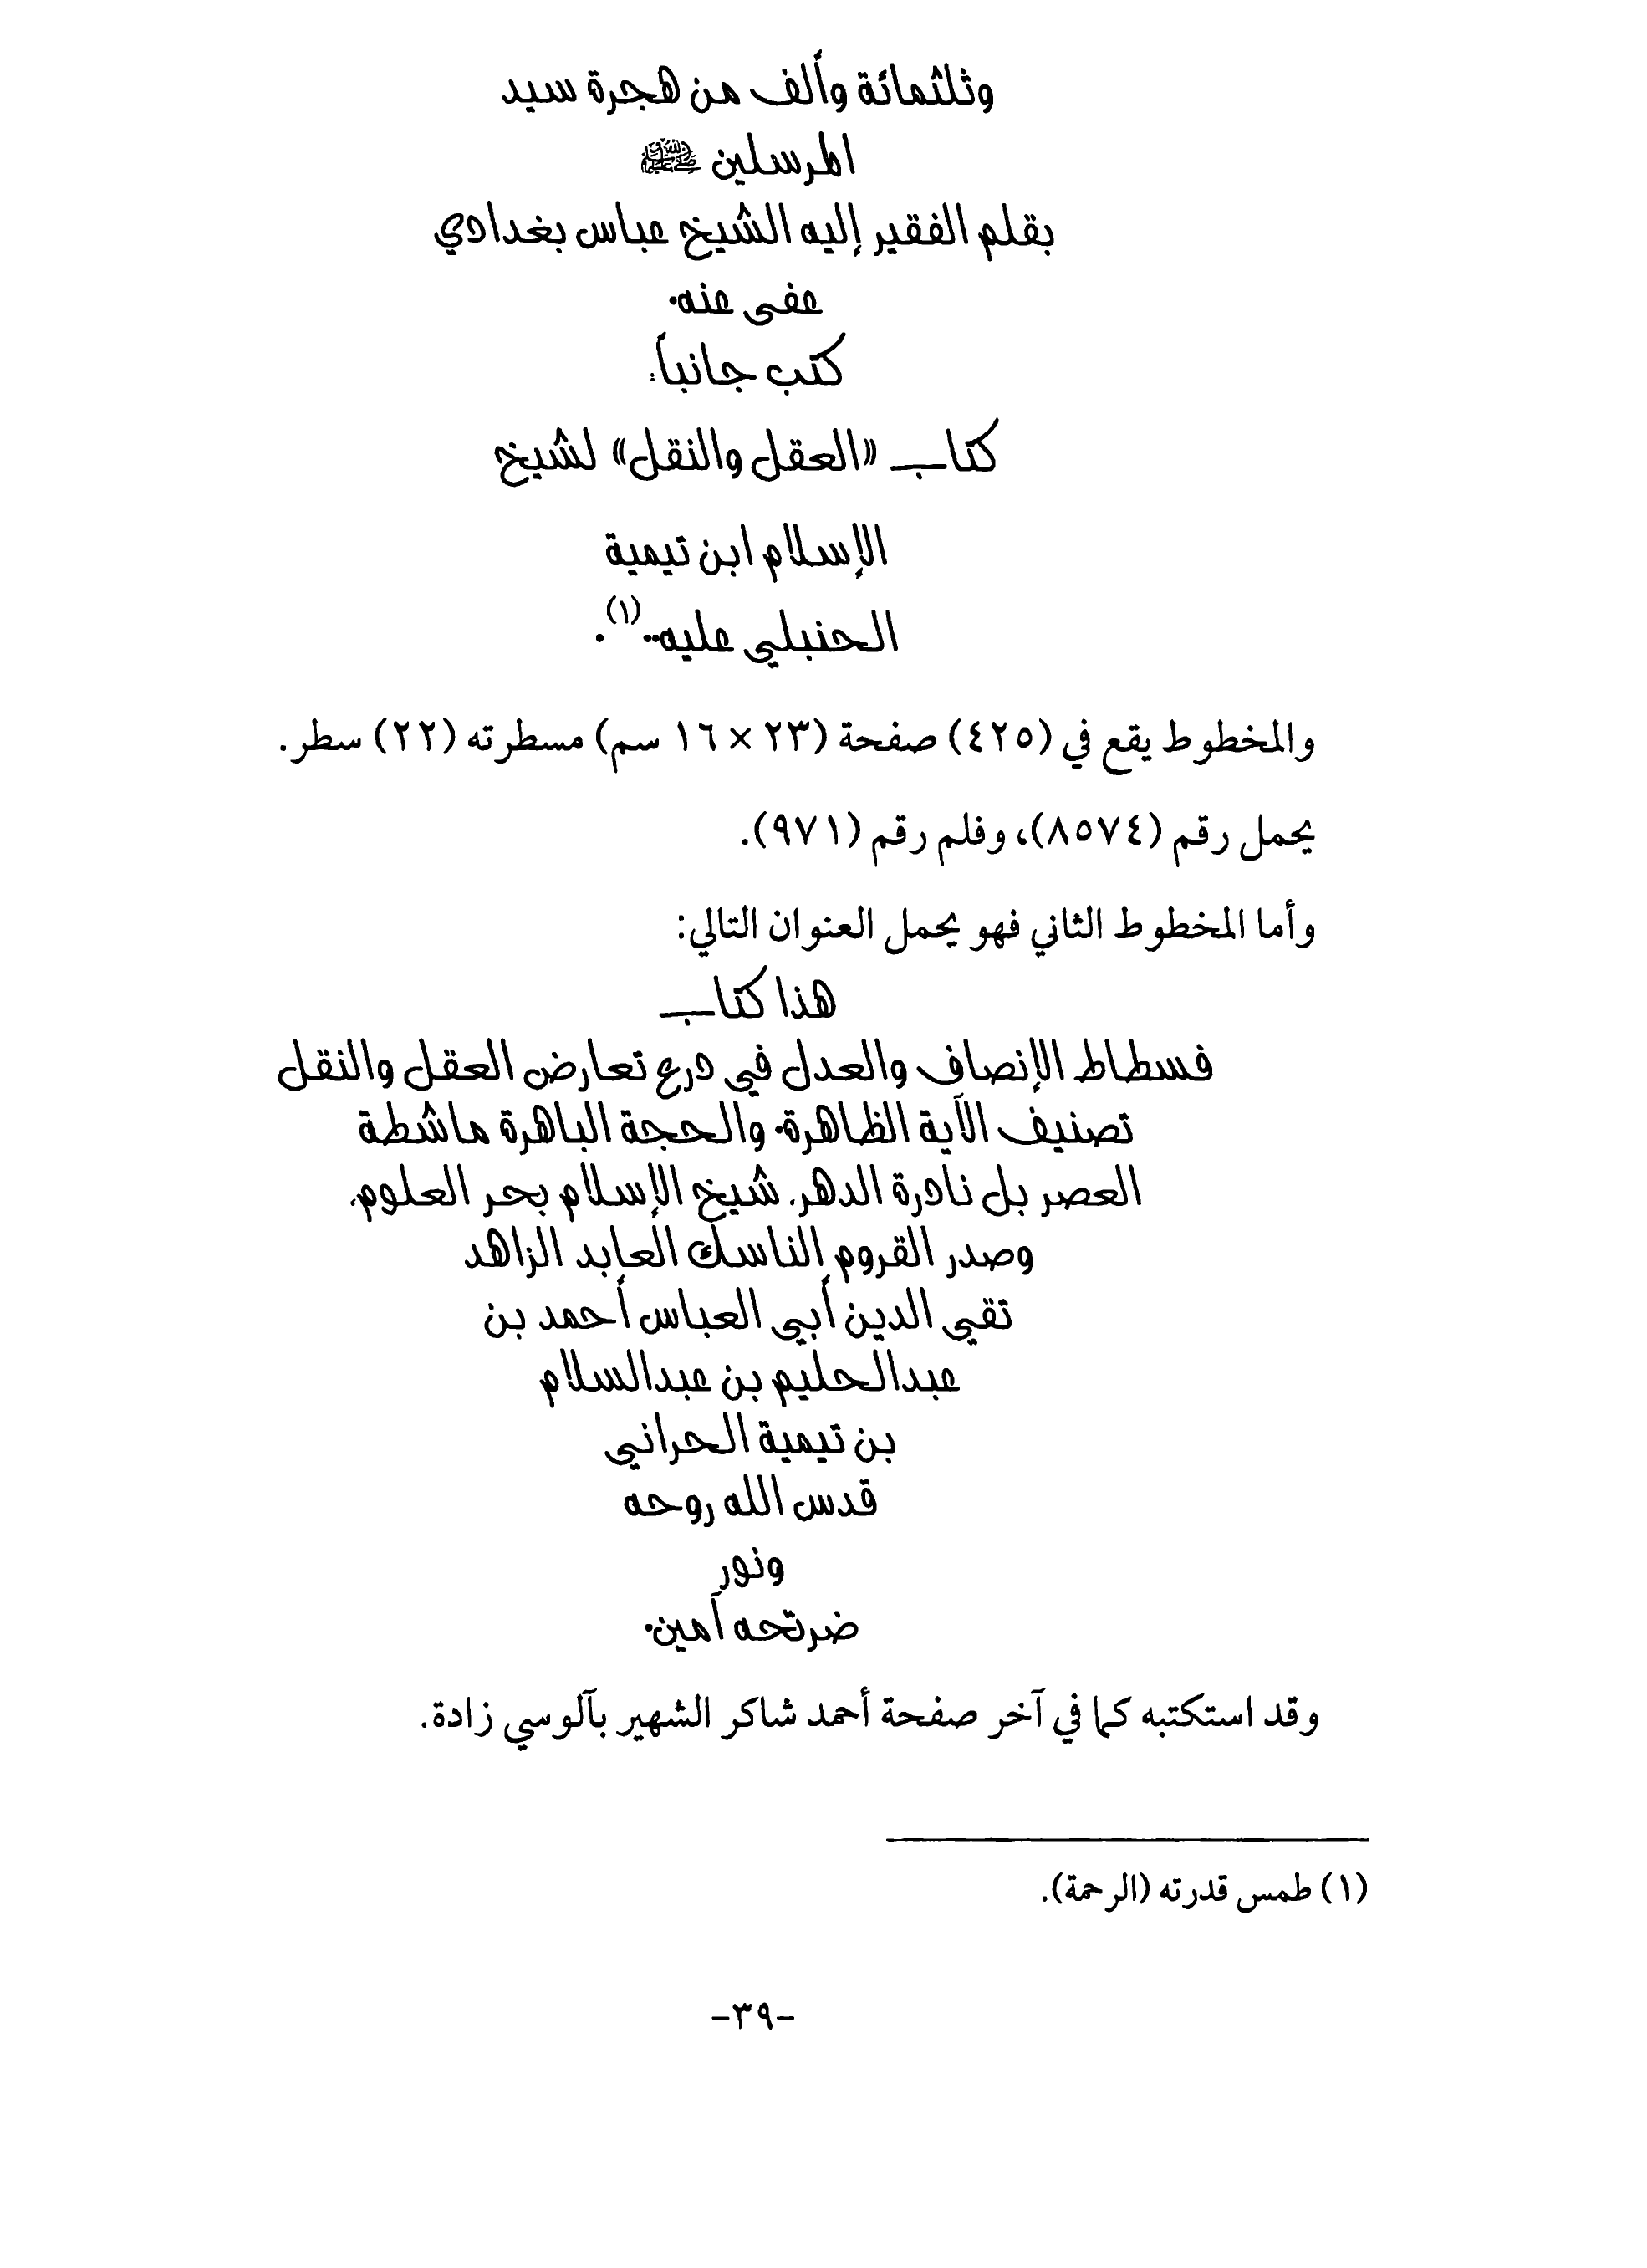 وثلثمائة وألف من هجرة سيد
المرسلين ﷺ
بقلم الفقير إليه الشيخ عباس بغدادي
عفى عنه.
كتب جانباً:
كتاب «العقل والنقل» لشيخ
الإسلام ابن تيمية
الحنبلي عليه..(١).
والمخطوط يقع في (٤٢٥) صفحة (٢٣ × ١٦ سم) مسطرته (٢٢) سطر.
يحمل رقم (٨٥٧٤)، وفلم رقم (٩٧١).
وأما المخطوط الثاني فهو يحمل العنوان التالي:
هذا كتاب
فسطاط الإنصاف والعدل في درء تعارض العقل والنقل
تصنيف الآية الظاهرة. والحجة الباهرة ماشطة
العصر بل نادرة الدهر. شيخ الإسلام بحر العلوم.
وصدر القروم الناسك العابد الزاهد
تقي الدين أبي العباس أحمد بن
عبدالحليم بن عبدالسلام
بن تيمية الحراني
قدس الله روحه
ونور
ضرتحه آمين.
وقد استكتبه كما في آخر صفحة أحمد شاكر الشهير بآلوسي زادة.
(١) طمس قدرته (الرحمة).
-٣٩-